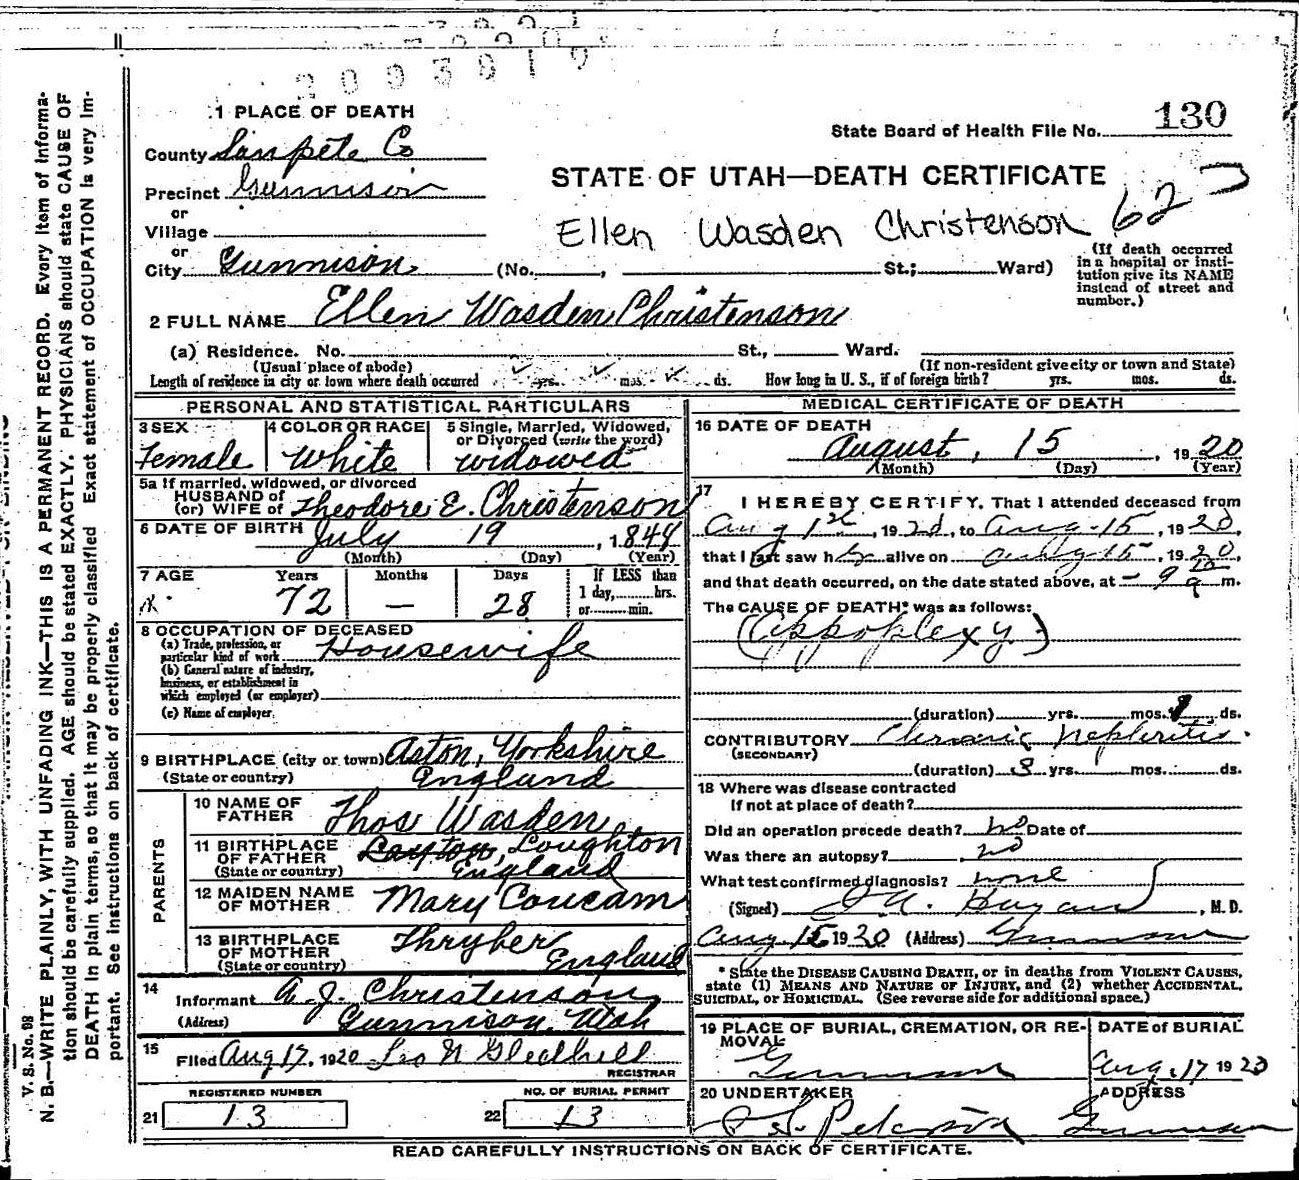 1 PLACE OF DEATH
County Sanpete Co
Precinct Gunnison
or
Village
or
City Gunnison (No. , St.; Ward)
State Board of Health File No. 130
STATE OF UTAH—DEATH CERTIFICATE
Ellen Wasden Christenson 62
(If death occurred
in a hospital or insti-
tution give its NAME
instead of street and
number.)
2 FULL NAME Ellen Wasden Christenson
(a) Residence. No. St., Ward.
(Usual place of abode) (If non-resident give city or town and State)
Length of residence in city or town where death occurred yrs. mos. ds. How long in U. S., if of foreign birth? yrs. mos. ds.
PERSONAL AND STATISTICAL PARTICULARS
3 SEX
Female
4 COLOR OR RACE
White
5 Single, Married, Widowed,
or Divorced (write the word)
widowed
5a If married, widowed, or divorced
HUSBAND of
(or) WIFE of Theodore E. Christenson
6 DATE OF BIRTH July 19, 1848
(Month) (Day) (Year)
7 AGE Years Months Days
72 — 28
If LESS than
1 day, hrs.
or min.
8 OCCUPATION OF DECEASED
(a) Trade, profession, or
particular kind of work Housewife
(b) General nature of industry,
business, or establishment in
which employed (or employer)
(c) Name of employer
9 BIRTHPLACE (city or town) Aston, Yorkshire
(State or country) England
PARENTS
10 NAME OF
FATHER Thos Wasden
11 BIRTHPLACE
OF FATHER Loughton
(State or country) England
12 MAIDEN NAME
OF MOTHER Mary Coucam
13 BIRTHPLACE
OF MOTHER Thryber
(State or country) England
14
Informant A. J. Christenson
(Address) Gunnison, Utah
15
Filed Aug 17, 1920 Leo N Gledhill
REGISTRAR
REGISTERED NUMBER
21 13
NO. OF BURIAL PERMIT
22 13
MEDICAL CERTIFICATE OF DEATH
16 DATE OF DEATH
August, 15, 1920
(Month) (Day) (Year)
17
I HEREBY CERTIFY, That I attended deceased from
Aug 1st, 1920, to Aug-15, 1920,
that I last saw her alive on Aug 15, 1920,
and that death occurred, on the date stated above, at - 9 m.
The CAUSE OF DEATH* was as follows:
(Appoplexy)
(duration) yrs. mos. ds.
CONTRIBUTORY Chronic Nephritis.
(SECONDARY)
(duration) 3 yrs. mos. ds.
18 Where was disease contracted
if not at place of death?
Did an operation precede death? no Date of
Was there an autopsy? no
What test confirmed diagnosis? none
(Signed) Hagan, M. D.
Aug 15 1920 (Address) Gunnison
* State the DISEASE CAUSING DEATH, or in deaths from VIOLENT CAUSES,
state (1) MEANS AND NATURE OF INJURY, and (2) whether ACCIDENTAL,
SUICIDAL, or HOMICIDAL. (See reverse side for additional space.)
19 PLACE OF BURIAL, CREMATION, OR RE-
MOVAL
Gunnison
DATE of BURIAL
Aug. 17 1920
20 UNDERTAKER
Peterson
ADDRESS
Gunnison
READ CAREFULLY INSTRUCTIONS ON BACK OF CERTIFICATE.
V. S. No. 98
N. B.—WRITE PLAINLY, WITH UNFADING INK—THIS IS A PERMANENT RECORD. Every item of informa-
tion should be carefully supplied. AGE should be stated EXACTLY. PHYSICIANS should state CAUSE OF
DEATH in plain terms, so that it may be properly classified Exact statement of OCCUPATION is very im-
portant. See instructions on back of certificate.